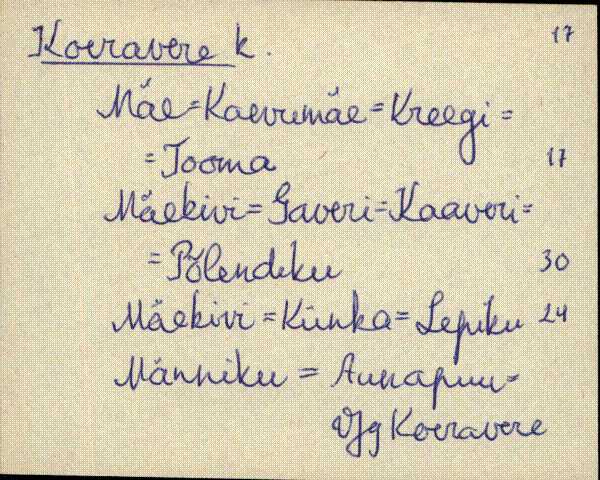 Koeravere k. 17
Mäe = Kaevumäe = Kreegi =
= Tooma 17
Mäekivi = Gaveri = Kaaveri =
= Põlendiku 30
Mäekivi = Künka = Lepiku 24
Männiku = Aunapuu =
Vjg Koeravere